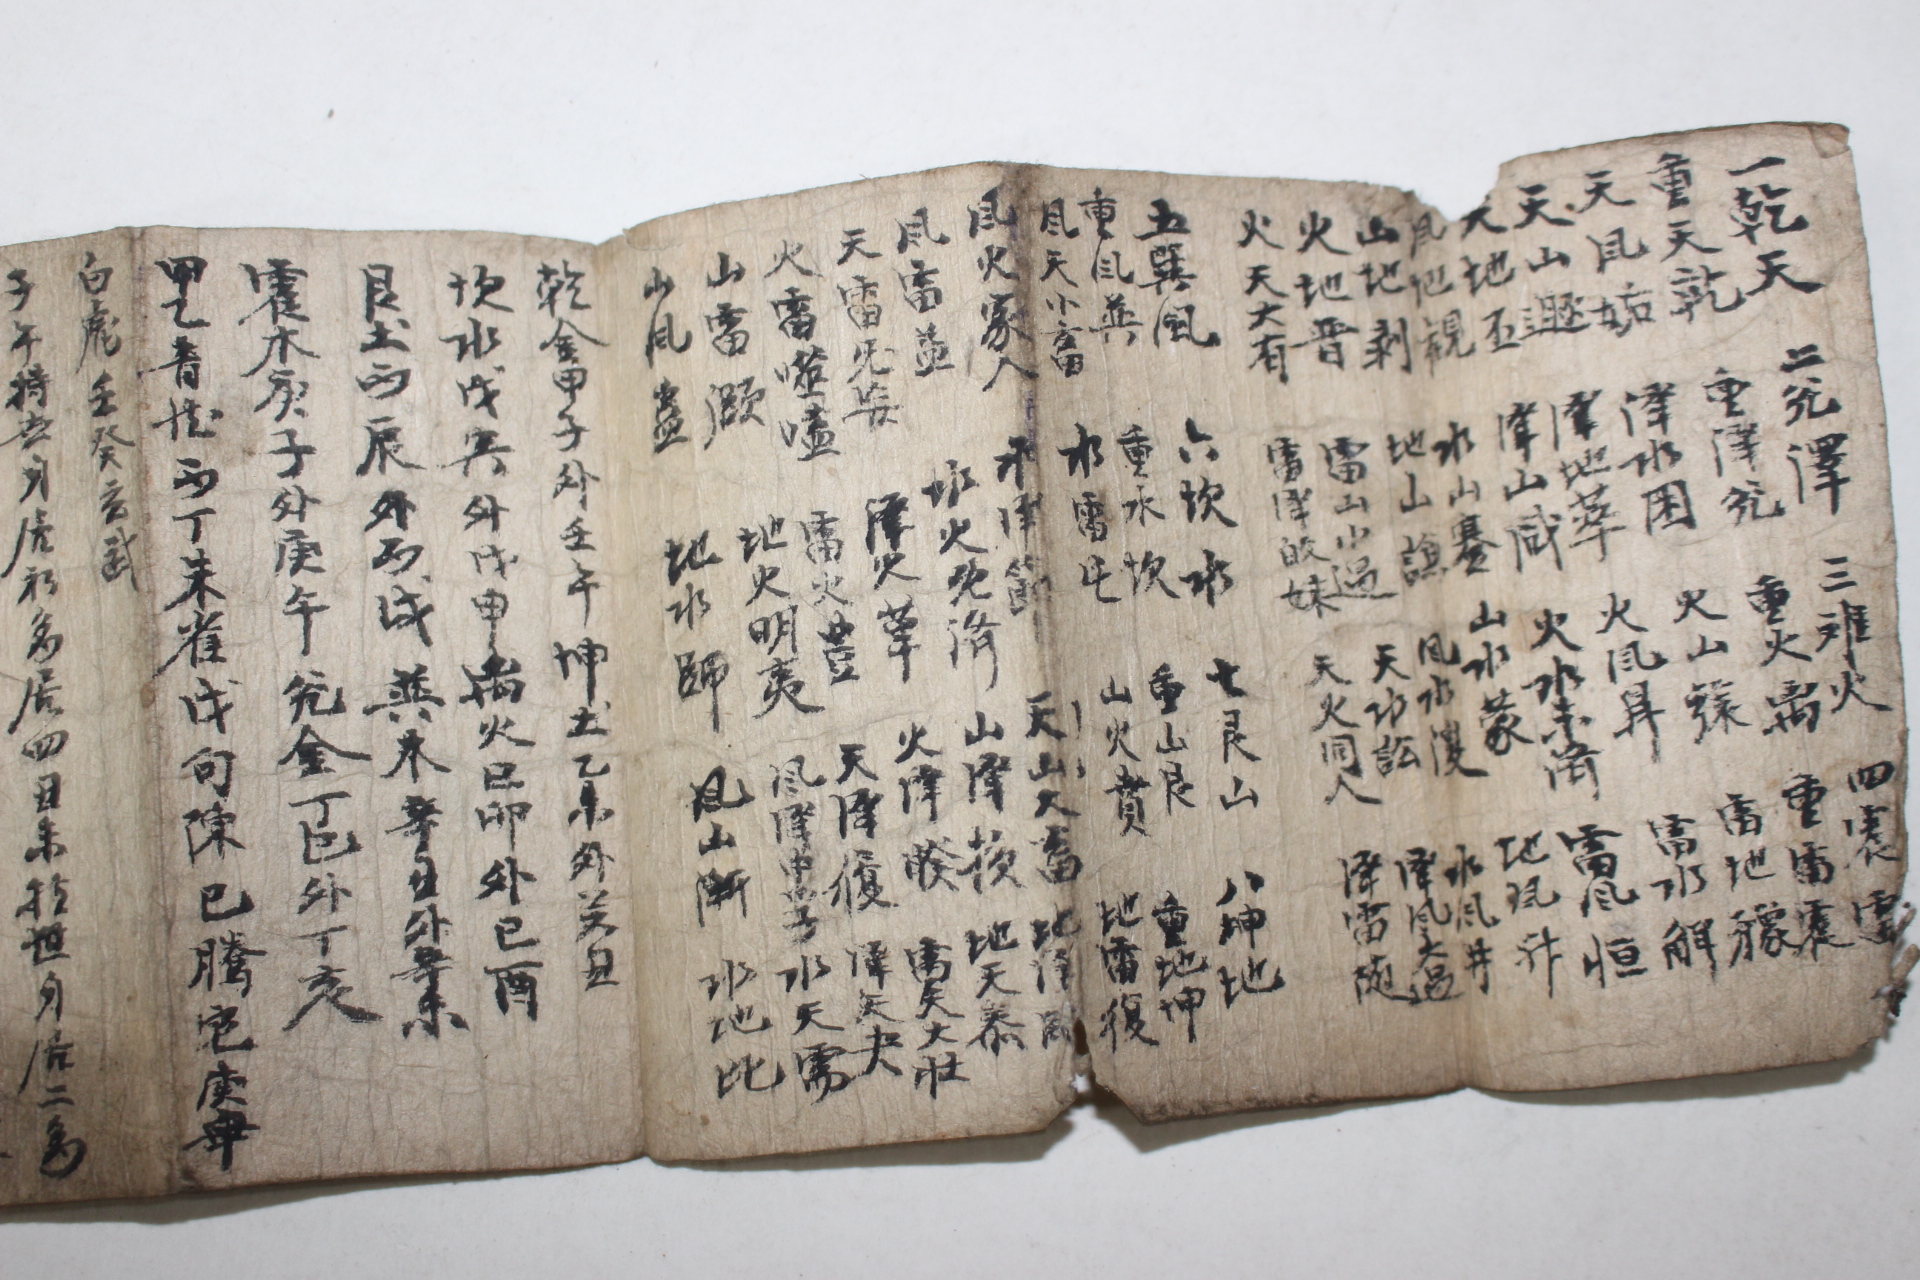 一乾天 二兌澤 三離火 四震雷
重天乾 重澤兌 重火离 重雷震
天風姤 澤水困 火山旅 雷地豫
天山遯 澤地萃 火風鼎 雷水解
天地否 澤山咸 火水未済 雷風恒
風地観 水山蹇 山水蒙 地風升
山地剥 地山謙 風水渙 水風井
火地晋 雷山小過 天水訟 澤風大過
火天大有 雷澤敀妹 天火同人 澤雷随
五巽風 六坎水 七艮山 八坤地
重風巽 重水坎 重山艮 重地坤
風天小畜 水雷屯 山火賁 地雷復
風火家人 水澤節 天山大畜 地澤
風雷益 水火既済 山澤損 地天泰
天雷旡妄 澤火革 火澤睽 雷天大壮
火雷噬嗑 雷火豊 天澤履 澤天夬
山雷頤 地火明夷 風澤中孚 水天需
山風蠱 地水師 風山漸 水地比
乾金甲子外壬午 坤土乙未外癸丑
坎水戊寅外戊申 离火己卯外己酉
艮土丙辰外丙戌 巽木辛丑外辛未
震木庚子外庚午 兌金丁巳外丁亥
甲乙青龙丙丁朱雀戊句陳己騰它庚辛
白虎壬癸玄武
子午持世身居初 居四丑未持世身居二